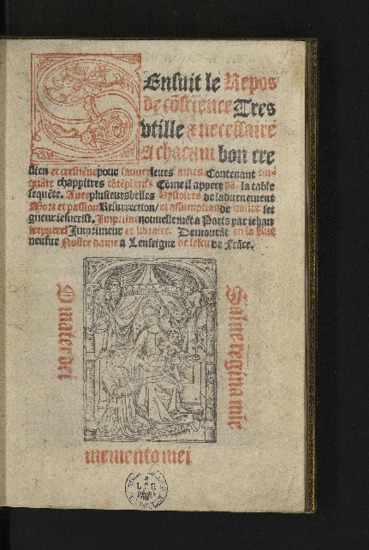 SEnsuit le Repos
de cõscience Tres
vtille & necessaire
A chacum bon cre
stien et crestiẽne pour sauuer leurs ames. Contenant cin-
quãte chappitres Cõme il appert la table
sequẽte. Auec plusieurs belles hystoires de laduenement
Mort et passion Resurrection / et assumption de nostre sei
gneur iesucrist. Imprime nouuellemẽt a Paris par iehan
trepperel Imprimeur et libraire. Demourãt en la Rue
neufue Nostre dame a Lenseigne de lescu de Frãce.
O mater dei
Salue regina mie
memento mei